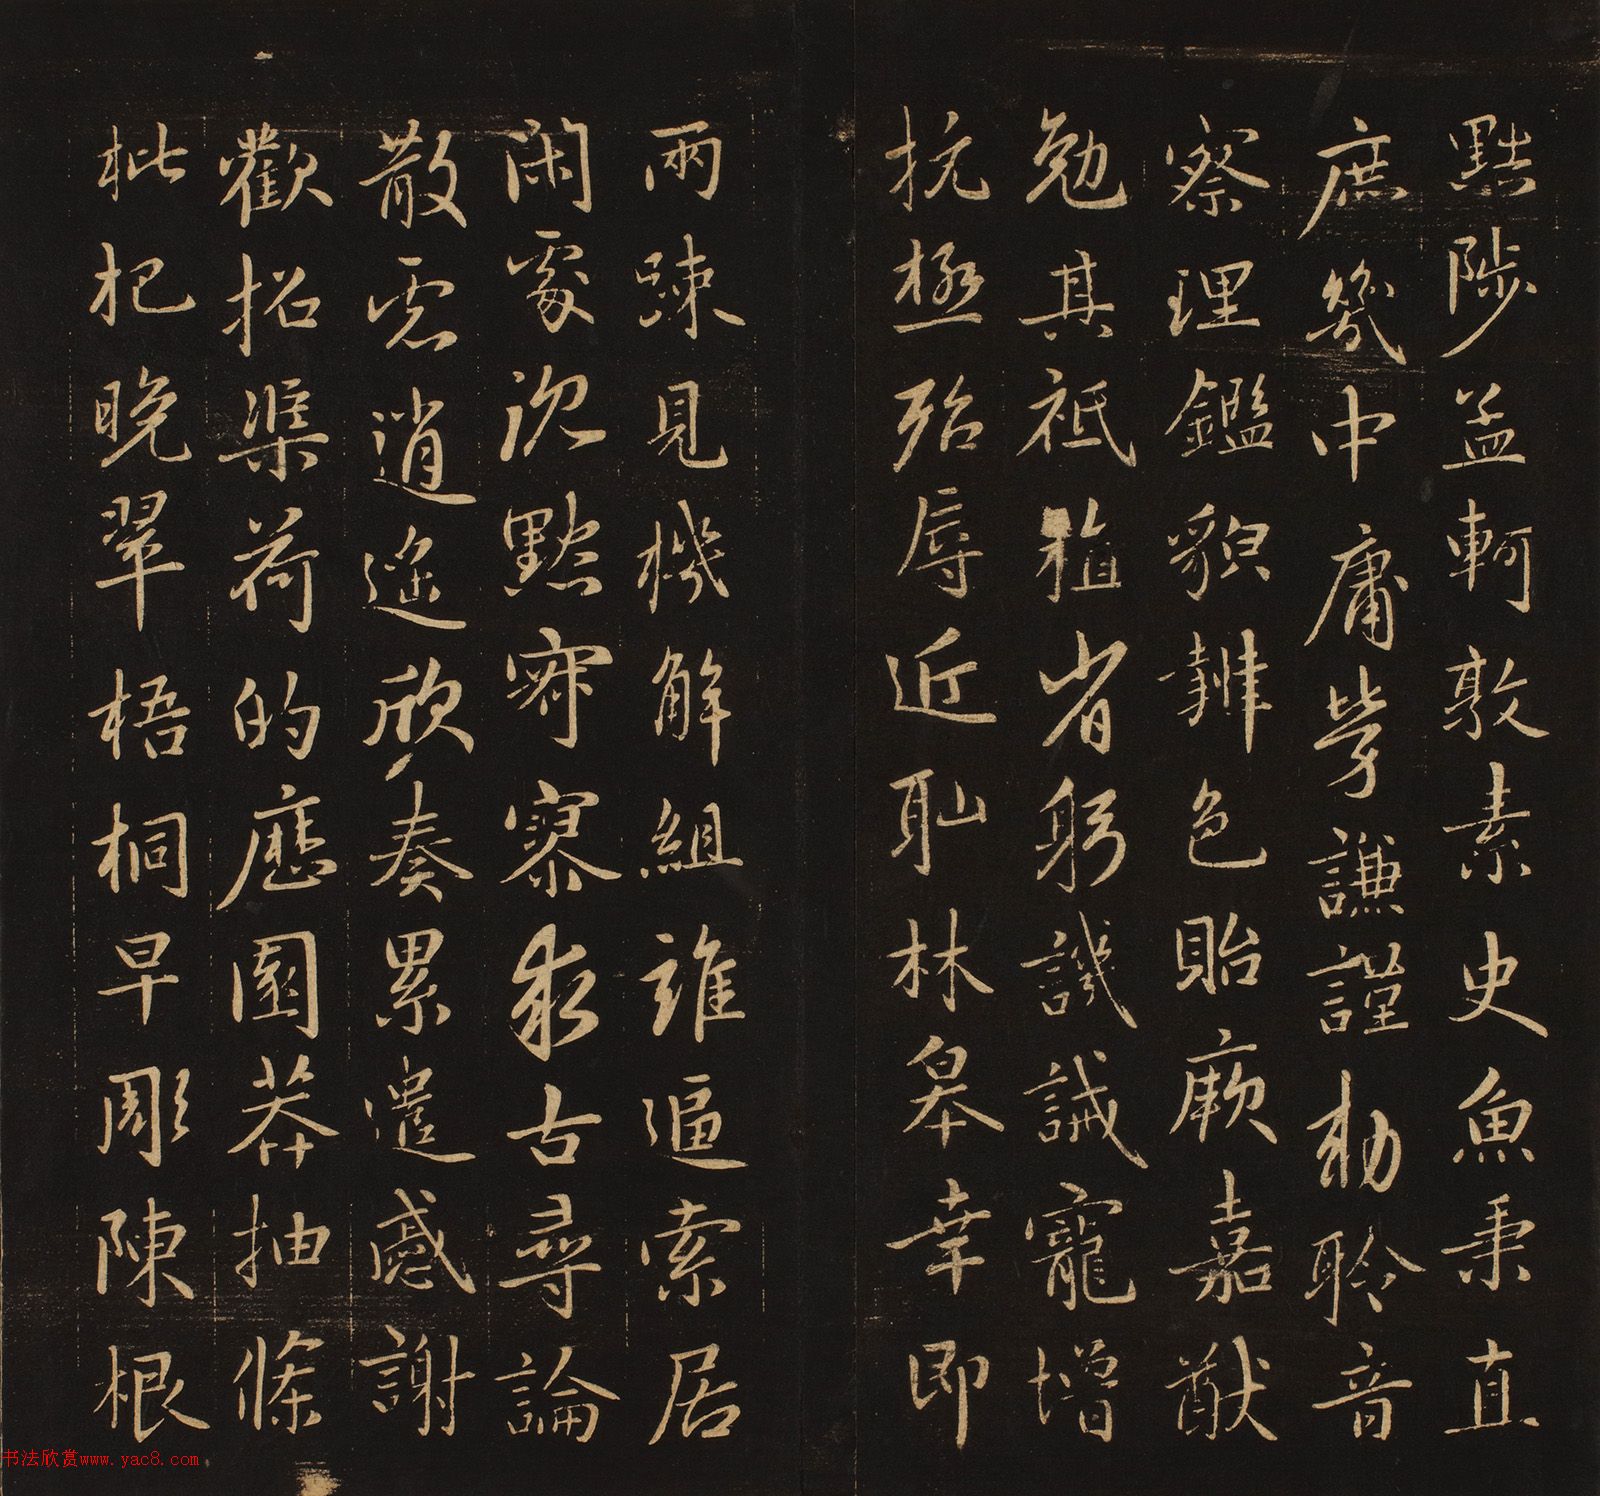 黜陟孟軻敦素史魚秉直
庶幾中庸勞謙謹勅聆音
察理鑑貌辨色貽厥嘉猷
勉其祗植省躬譏誡寵增
抗極殆辱近耻林皋幸即
兩疎見機解組誰逼索居
閑處沉默寂寥求古尋論
散慮逍遙欣奏累遣慼謝
歡招渠荷的歷園莽抽條
枇杷晚翠梧桐早彫陳根
书法欣赏www.yac8.com